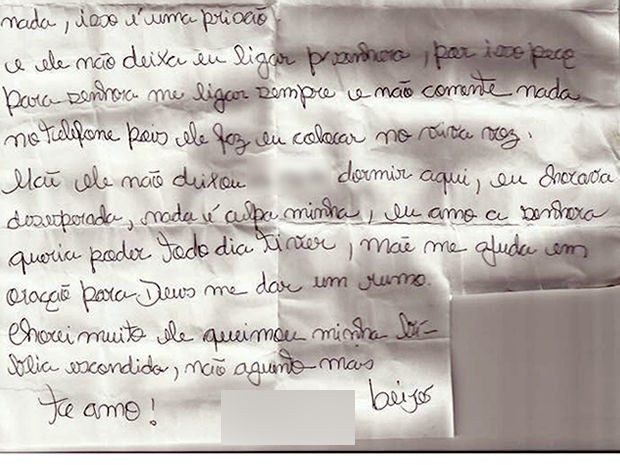 nada, isso é uma prisão.
e ele não deixa eu ligar p/ senhora, por isso peço
para senhora me ligar sempre e não comente nada
no telefone pois ele faz eu colocar no viva voz.
Mãe ele não deixou dormir aqui, eu chorava
desesperada, nada é culpa minha, eu amo a senhora
queria poder todo dia ti ver, mãe me ajuda em
oração para Deus me dar um rumo.
Chorei muito ele queimou minha bí-
blia escondida, não aguento mais
te amo! beijos